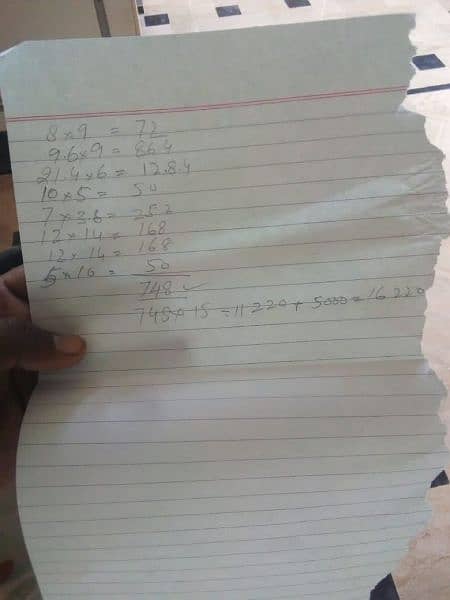 8 × 9 = 72
9.6 × 9 = 86.4
21.4 × 6 = 12.8.4
10 × 5 = 50
7 × 3.6 = 25.2
12 × 14 = 168
12 × 14 = 168
5 × 10 = 50
748 ✓
748 × 15 = 11220 + 5000 = 16220